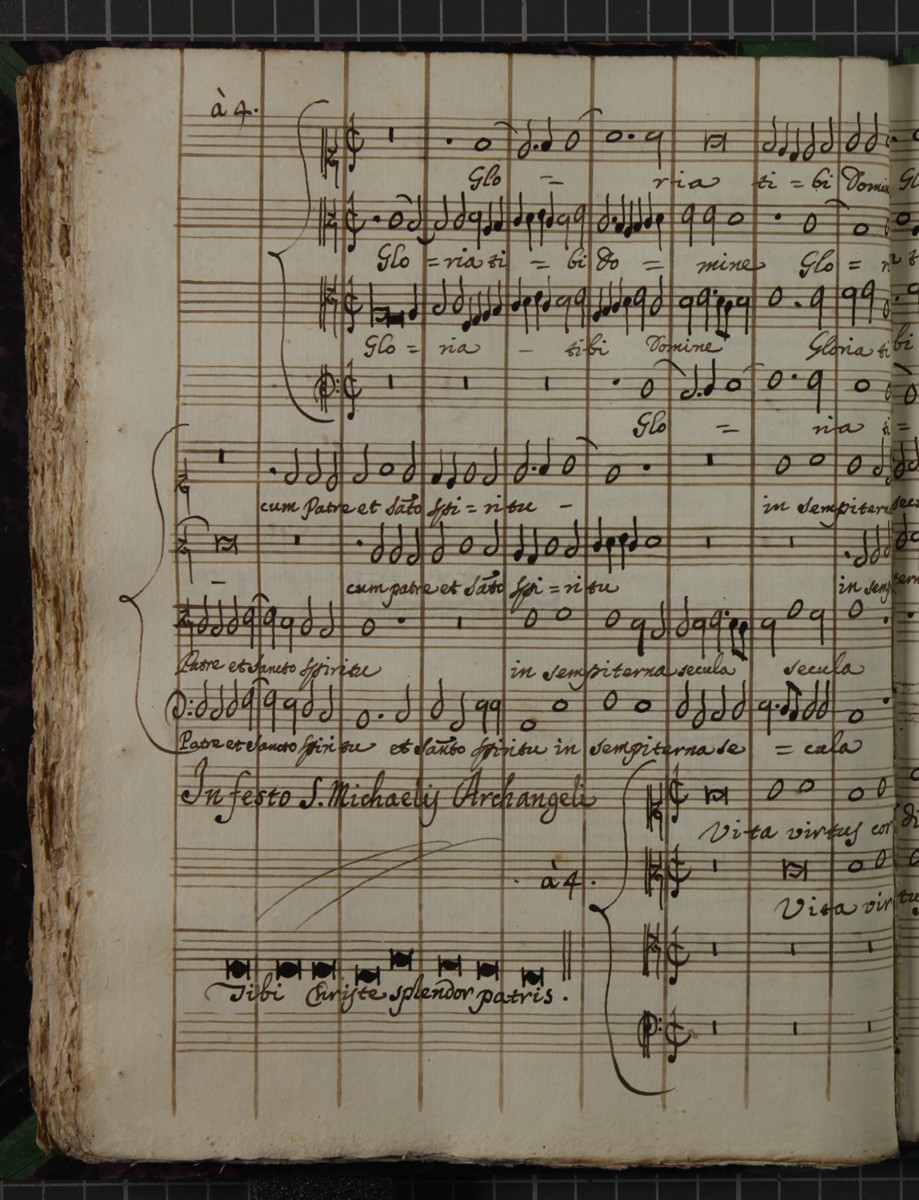 à 4.
Glo = ria ti = bi Domi
Glo = ria ti = bi do = mine Glo =
Glo = ria - tibi Domine Gloria ti bi
Glo = ria ti =
cum Patre et Sāto Spi = ritu - in sempiterna
- cum patre et Sāto Spi = ritu in semp
Patre et Sancto Spiritu in sempiterna secula secula
Patre et Sancto Spiritu et Sāncto Spiritu in sempiterna se = cula
In festo S. Michaelis Archangeli
Vita virtus cor di
à 4.
Vita vir tu
Tibi Christe splendor patris.